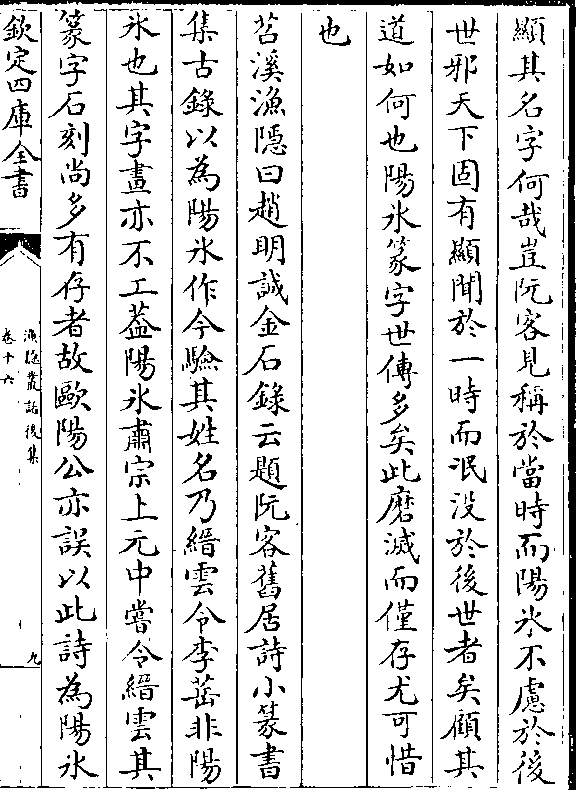 顯其名字何哉豈阮客見稱於當時而陽氷不慮於後
世邪天下固有顯聞於一時而泯没於後世者矣顧其
道如何也陽氷篆字世傳多矣此磨滅而僅存尤可惜
也
苕溪漁隱曰趙明誠金石錄云題阮客舊居詩小篆書
集古錄以為陽氷作今驗其姓名乃縉雲令李蕚非陽
氷也其字畫亦不工葢陽氷肅宗上元中嘗令縉雲其
篆字石刻尚多有存者故歐陽公亦誤以此詩為陽氷
欽定四庫全書
漁隱叢話後集
卷十六
九